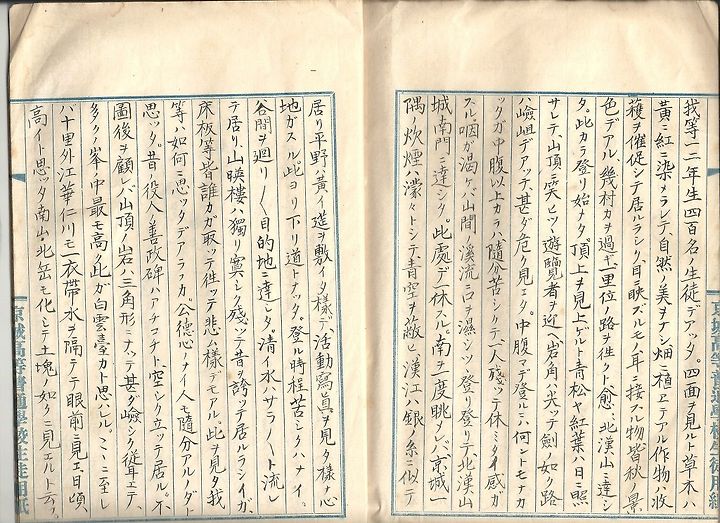 我等一二年生四百名ノ生徒デアッタ。四面ヲ見ルト草木ハ
黄ニ紅ニ染メラレテ自然ノ美ヲナシ畑ニ植ヱテアル作物ハ収
穫ヲ催促シテ居ルラシク目ニ映ズルモノ耳ニ接スル物皆秋ノ景
色デアル。幾村カヲ過ギ一里位ノ路ヲ往クト愈〻北漢山ニ達シ
タ。此カラ登リ始メタ。頂上ヲ見上ゲルト青松ヤ紅葉ハ日ニ照
サレテ、山頂ニ突ヒツヽ遊覧者ヲ迎ヘ岩角ハ光ッテ劍ノ如ク路
ハ嶮岨デアッテ甚ダ危ク見エタ。中腹マデ登ルニハ何ントモナカ
ッタガ中腹以上カラハ、隨分苦シンデ一人殘ッテ休ミタイ感ガ
スル。咽ガ渇ケバ山間ノ溪流ニ口ヲ濕シツヽ登リ登リテ北漢山
城南門ニ達シタ。此處デ一休スル。南ヲ一度眺メレバ京城一
隅ノ炊煙ハ濛々トシテ、青空ヲ蔽ヒ漢江ハ銀ノ糸ニ似テ
京城高等普通學校生徒用紙
居リ平野ノ黄イ莚ヲ敷イタ様デ、活動寫眞ヲ見タ様ナ心
地ガスル。此ヨリ下リ道トナッタ。登ル時程苦シクハナイ。
谷間ヲ廻リ〱目的地ニ達シタ。清イ水ハサラ〱ト流レ
テ居リ、山暎樓ハ獨リ寞シク殘ッテ昔ヲ誇ッテ居ルラシイガ、
床板等皆誰カガ取ッテ徃ッテ悲ム様デモアル。此ヲ見タ我
等ハ如何ニ思ッタデアラウカ。公徳心ノナイ人モ隨分アルノダト
思ッタ。昔ノ役人ノ善政碑ハアチコチト、空シク立ッテ居ル。不
圖後ヲ顧レバ山頂ノ岩ハ三角形ニナッテ甚ダ嶮シク聳エテ、
多クノ峯ノ中最モ高イ此ガ白雲臺カト思ハレル。こヽニ至レ
バ十里外江華仁川モ一衣帶水ヲ隔テテ眼前ニ見エ日頃、
高イト思ッタ南山ノ北岳モ化シテ土塊ノ如クニ見エルト云フ。
京城高等普通學校生徒用紙